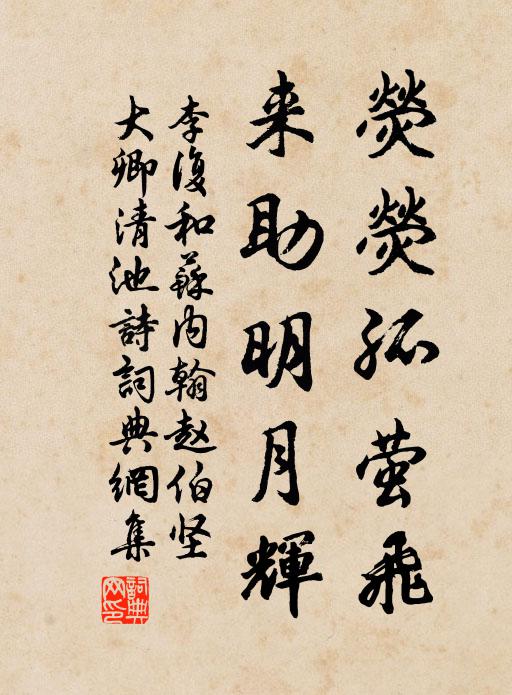 熒熒孤萤飛
来助明月輝
李復和蘇内翰赵伯坚
大卿清池詩詞典網集
詞典
网印